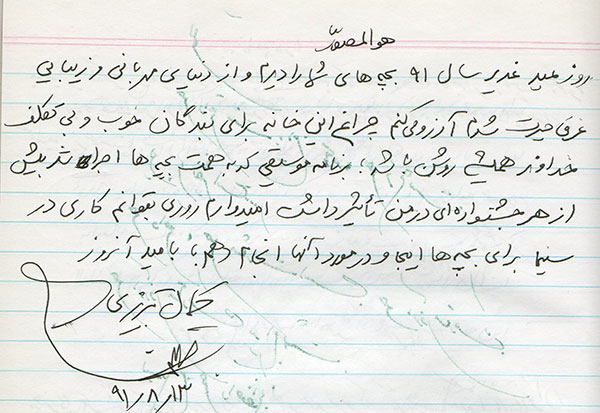 هوالمصور
روز عید غدیر سال ۹۱ بچه های شما را دیدم و از دنیایی مهربانی و زیبایی
غرق حیرت شدم آرزو می‌کنم چراغ این خانه برای بندگان خوب و بی تکلف
خداوند همیشه روشن باشد؛ برنامه موسیقی که به همت بچه ها اجرا شد بیش
از هر جشنواره ای در من تأثیر داشت امیدوارم روزی بتوانم کاری در
سینما برای بچه ها اینجا و در مورد آنها انجام دهم با امید آنروز
کمال تبریزی
۹۱/۸/۱۳